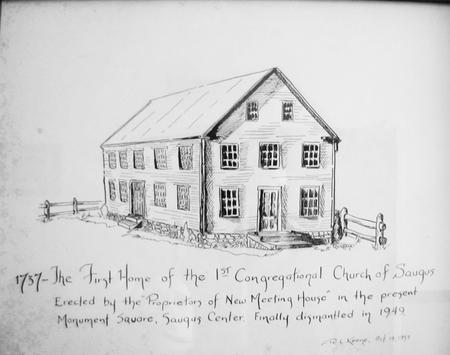 1737-The First Home of the 1ST Congregational Church of Saugus
Erected by the "Proprietors of New Meeting House" in the present
Monument Square, Saugus Center. Finally dismantled in 1949